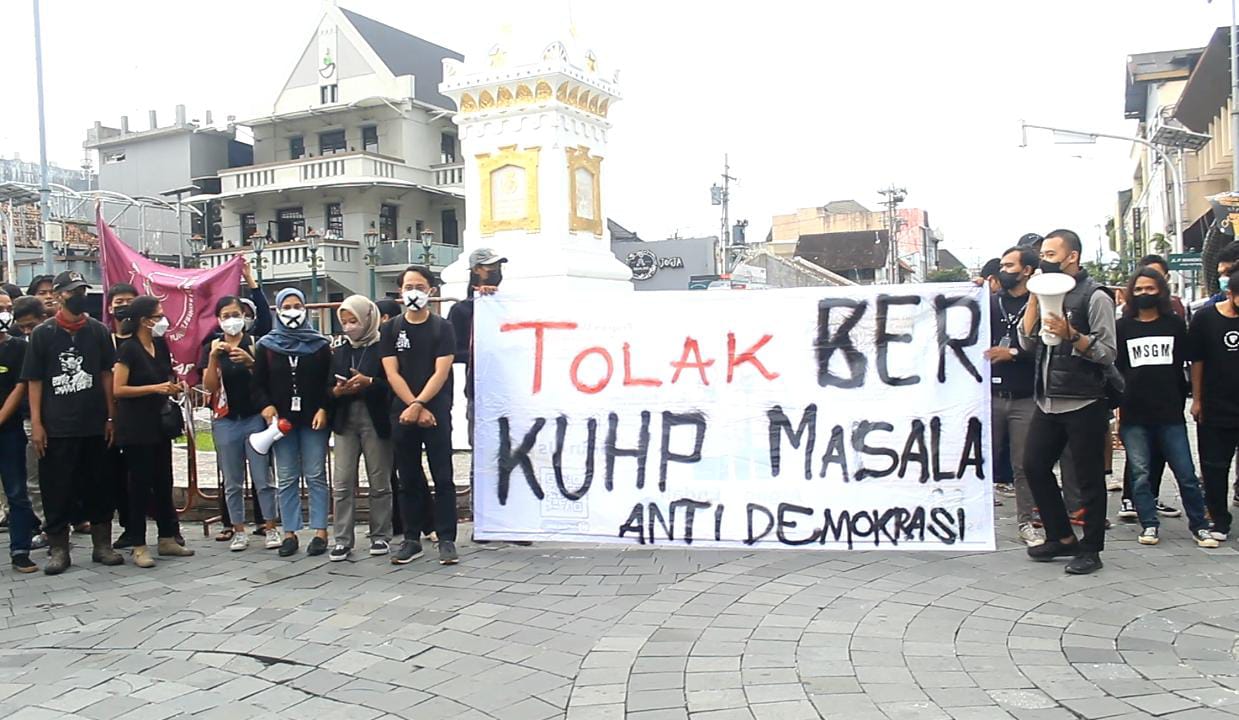 TOLAK BER
KUHP MASALA
ANTI DEMOKRASI
JOGJA
MSGM